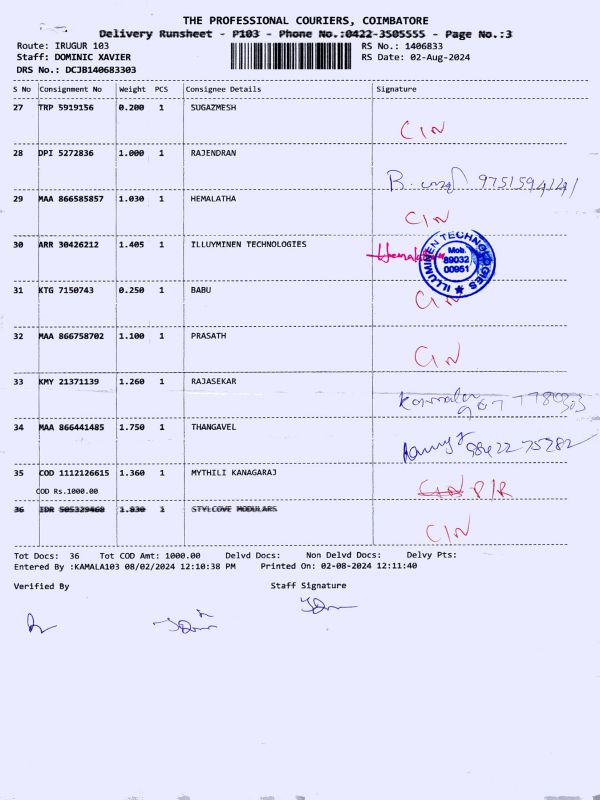 THE PROFESSIONAL COURIERS, COIMBATORE
Delivery Runsheet - P103 - Phone No.:0422-3505555 - Page No.:3
Route: IRUGUR 103
RS No.: 1406833
Staff: DOMINIC XAVIER
RS Date: 02-Aug-2024
DRS No.: DCJB140683303
S No Consignment No Weight PCS Consignee Details Signature
27 TRP 5919156 0.200 1 SUGAZMESH
CIN
28 DPI 5272836 1.000 1 RAJENDRAN
B. 9751594141
29 MAA 866585857 1.030 1 HEMALATHA
CIN
30 ARR 30426212 1.405 1 ILLUYMINEN TECHNOLOGIES
Hemalatha
ILLUMINEN TECHNOLOGIES
Mob.
89032
00951
31 KTG 7150743 0.250 1 BABU
CIN
32 MAA 866758702 1.100 1 PRASATH
CIN
33 KMY 21371139 1.260 1 RAJASEKAR
34 MAA 866441485 1.750 1 THANGAVEL
98422 75282
35 COD 1112126615 1.360 1 MYTHILI KANAGARAJ
COD Rs.1000.00
CIN P/R
36 IDR 505329468 1.830 1 STYLCOVE MODULARS
CIN
Tot Docs: 36 Tot COD Amt: 1000.00 Delvd Docs: Non Delvd Docs: Delvy Pts:
Entered By :KAMALA103 08/02/2024 12:10:38 PM Printed On: 02-08-2024 12:11:40
Verified By
Staff Signature